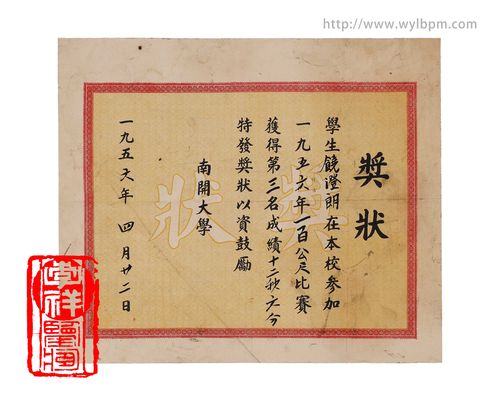 http://www.wylbpm.com
獎狀
學生饒澄朗在本校參加
一九五六年一百公尺比賽
獲得第三名成績十二秒六今
特發獎狀以資鼓勵
南開大學
一九五六年 四月廿二日
獎狀